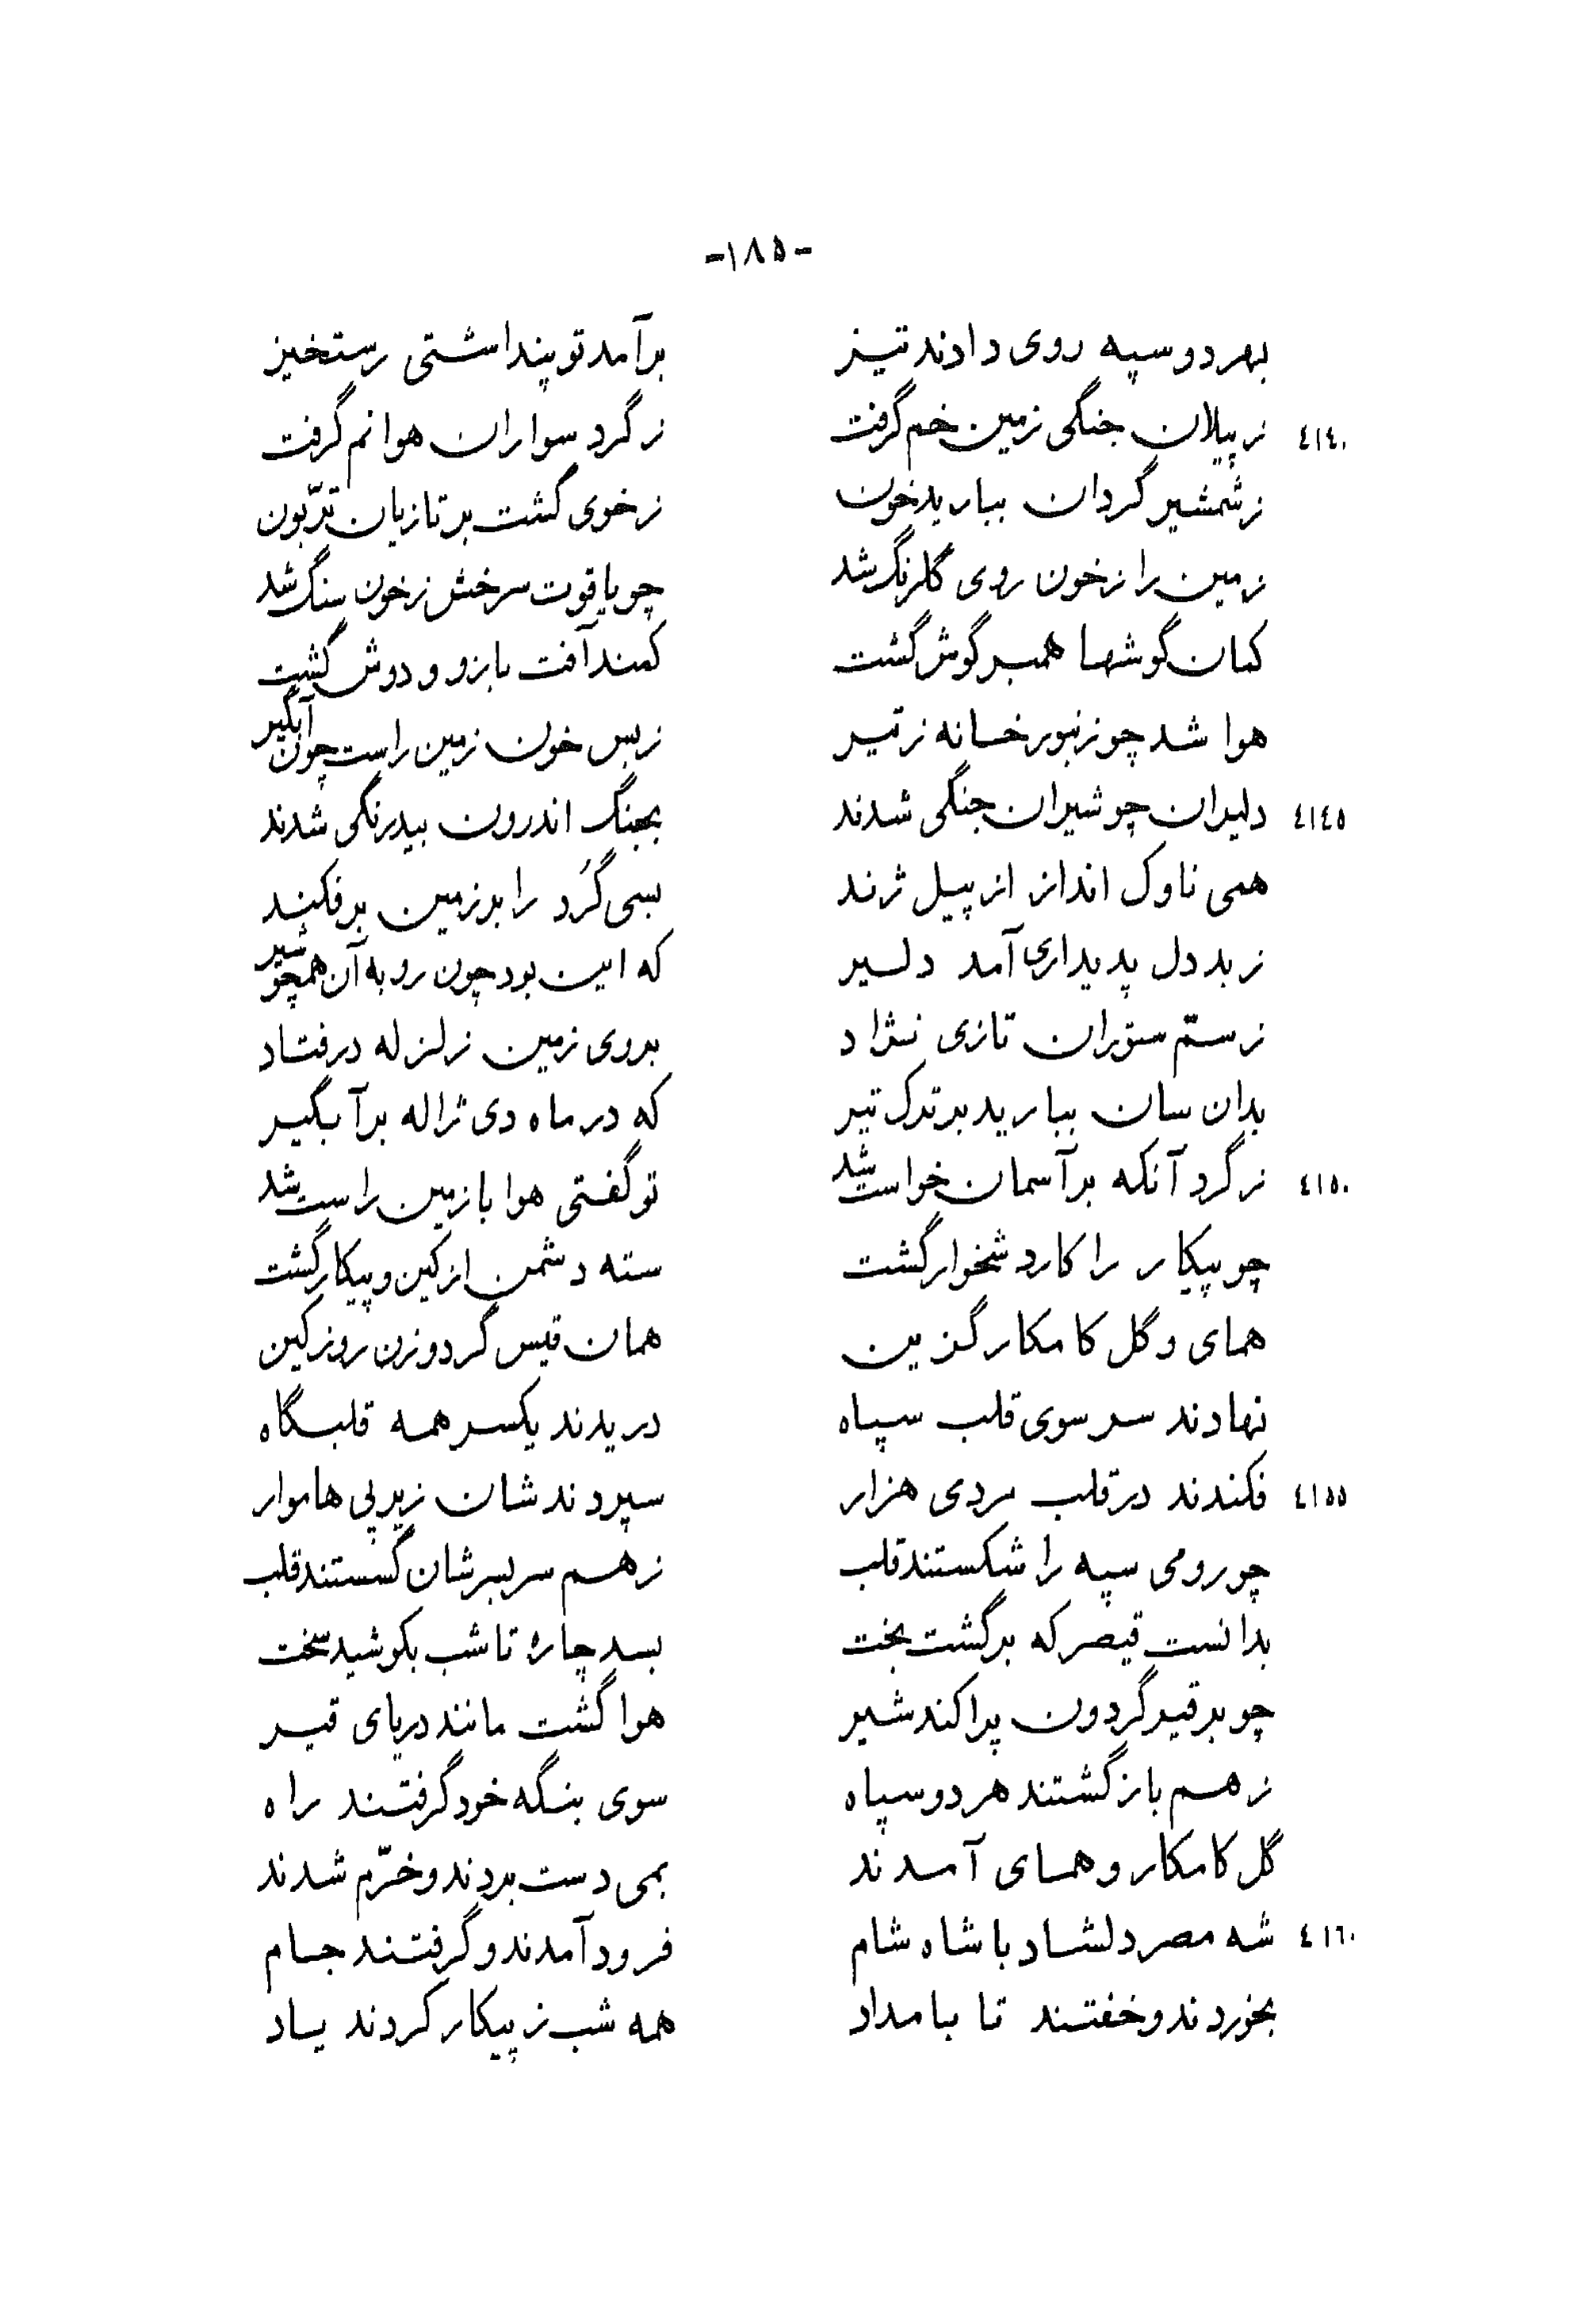 -۱۸۵-
بهر دو سپه روی دادند تیز برآمد تو پنداشتی رستخیز
۴۱۴۰ ز پیلان جنگی زمین خم گرفت ز گرد سواران هوا نم گرفت
ز شمشیر گردان ببارید خون ز خوی گشت بر تازیان تر بون
زمین را ز خون روی گلرنگ شد چو یاقوت سرخش ز خون سنگ شد
کمان گوشها همبر گوش گشت کمند آفت بازو و دوش گشت
هوا شد چو زنبور خانه ز تیر ز بس خون زمین راست چون آبگیر
۴۱۴۵ دلیران چو شیران جنگی شدند بجنگ اندرون بیدرنگی شدند
همی ناوک انداز از پیل ژند بسی گُرد را بر زمین برفکند
ز بد دل پدیداری آمد دلیر که این بود چون روبه آن همچو شیر
ز سمّ ستوران تازی نژاد بروی زمین زلزله درفتاد
بدان سان ببارید بر ترک تیر که در ماه دی ژاله بر آبگیر
۴۱۵۰ ز گرد آنکه بر آسمان خواست شد تو گفتی هوا با زمین راست شد
چو پیکار را کارد شخوار گشت سته دشمن از کین و پیکار گشت
همای و گل کامکار گزین همان قیس گردوزن روز کین
نهادند سر سوی قلب سپاه دریدند یکسر همه قلبگاه
۴۱۵۵ فکندند در قلب مردی هزار سپردندشان زیر پی هاموار
چو رومی سپه را شکستند قلب ز هم سربسرشان گسستند قلب
بدانست قیصر که برگشت بخت بسد چاره تا شب بکوشید سخت
چو بر قیر گردون پراکند شیر هوا گشت مانند دریای قیر
ز هم باز گشتند هر دو سپاه سوی بنگه خود گرفتند راه
گل کامکار و همای آمدند بمی دست بردند و خرّم شدند
۴۱۶۰ شه مصر دلشاد با شاه شام فرود آمدند و گرفتند جام
بخوردند و خفتند تا بامداد همه شب ز پیکار کردند یاد